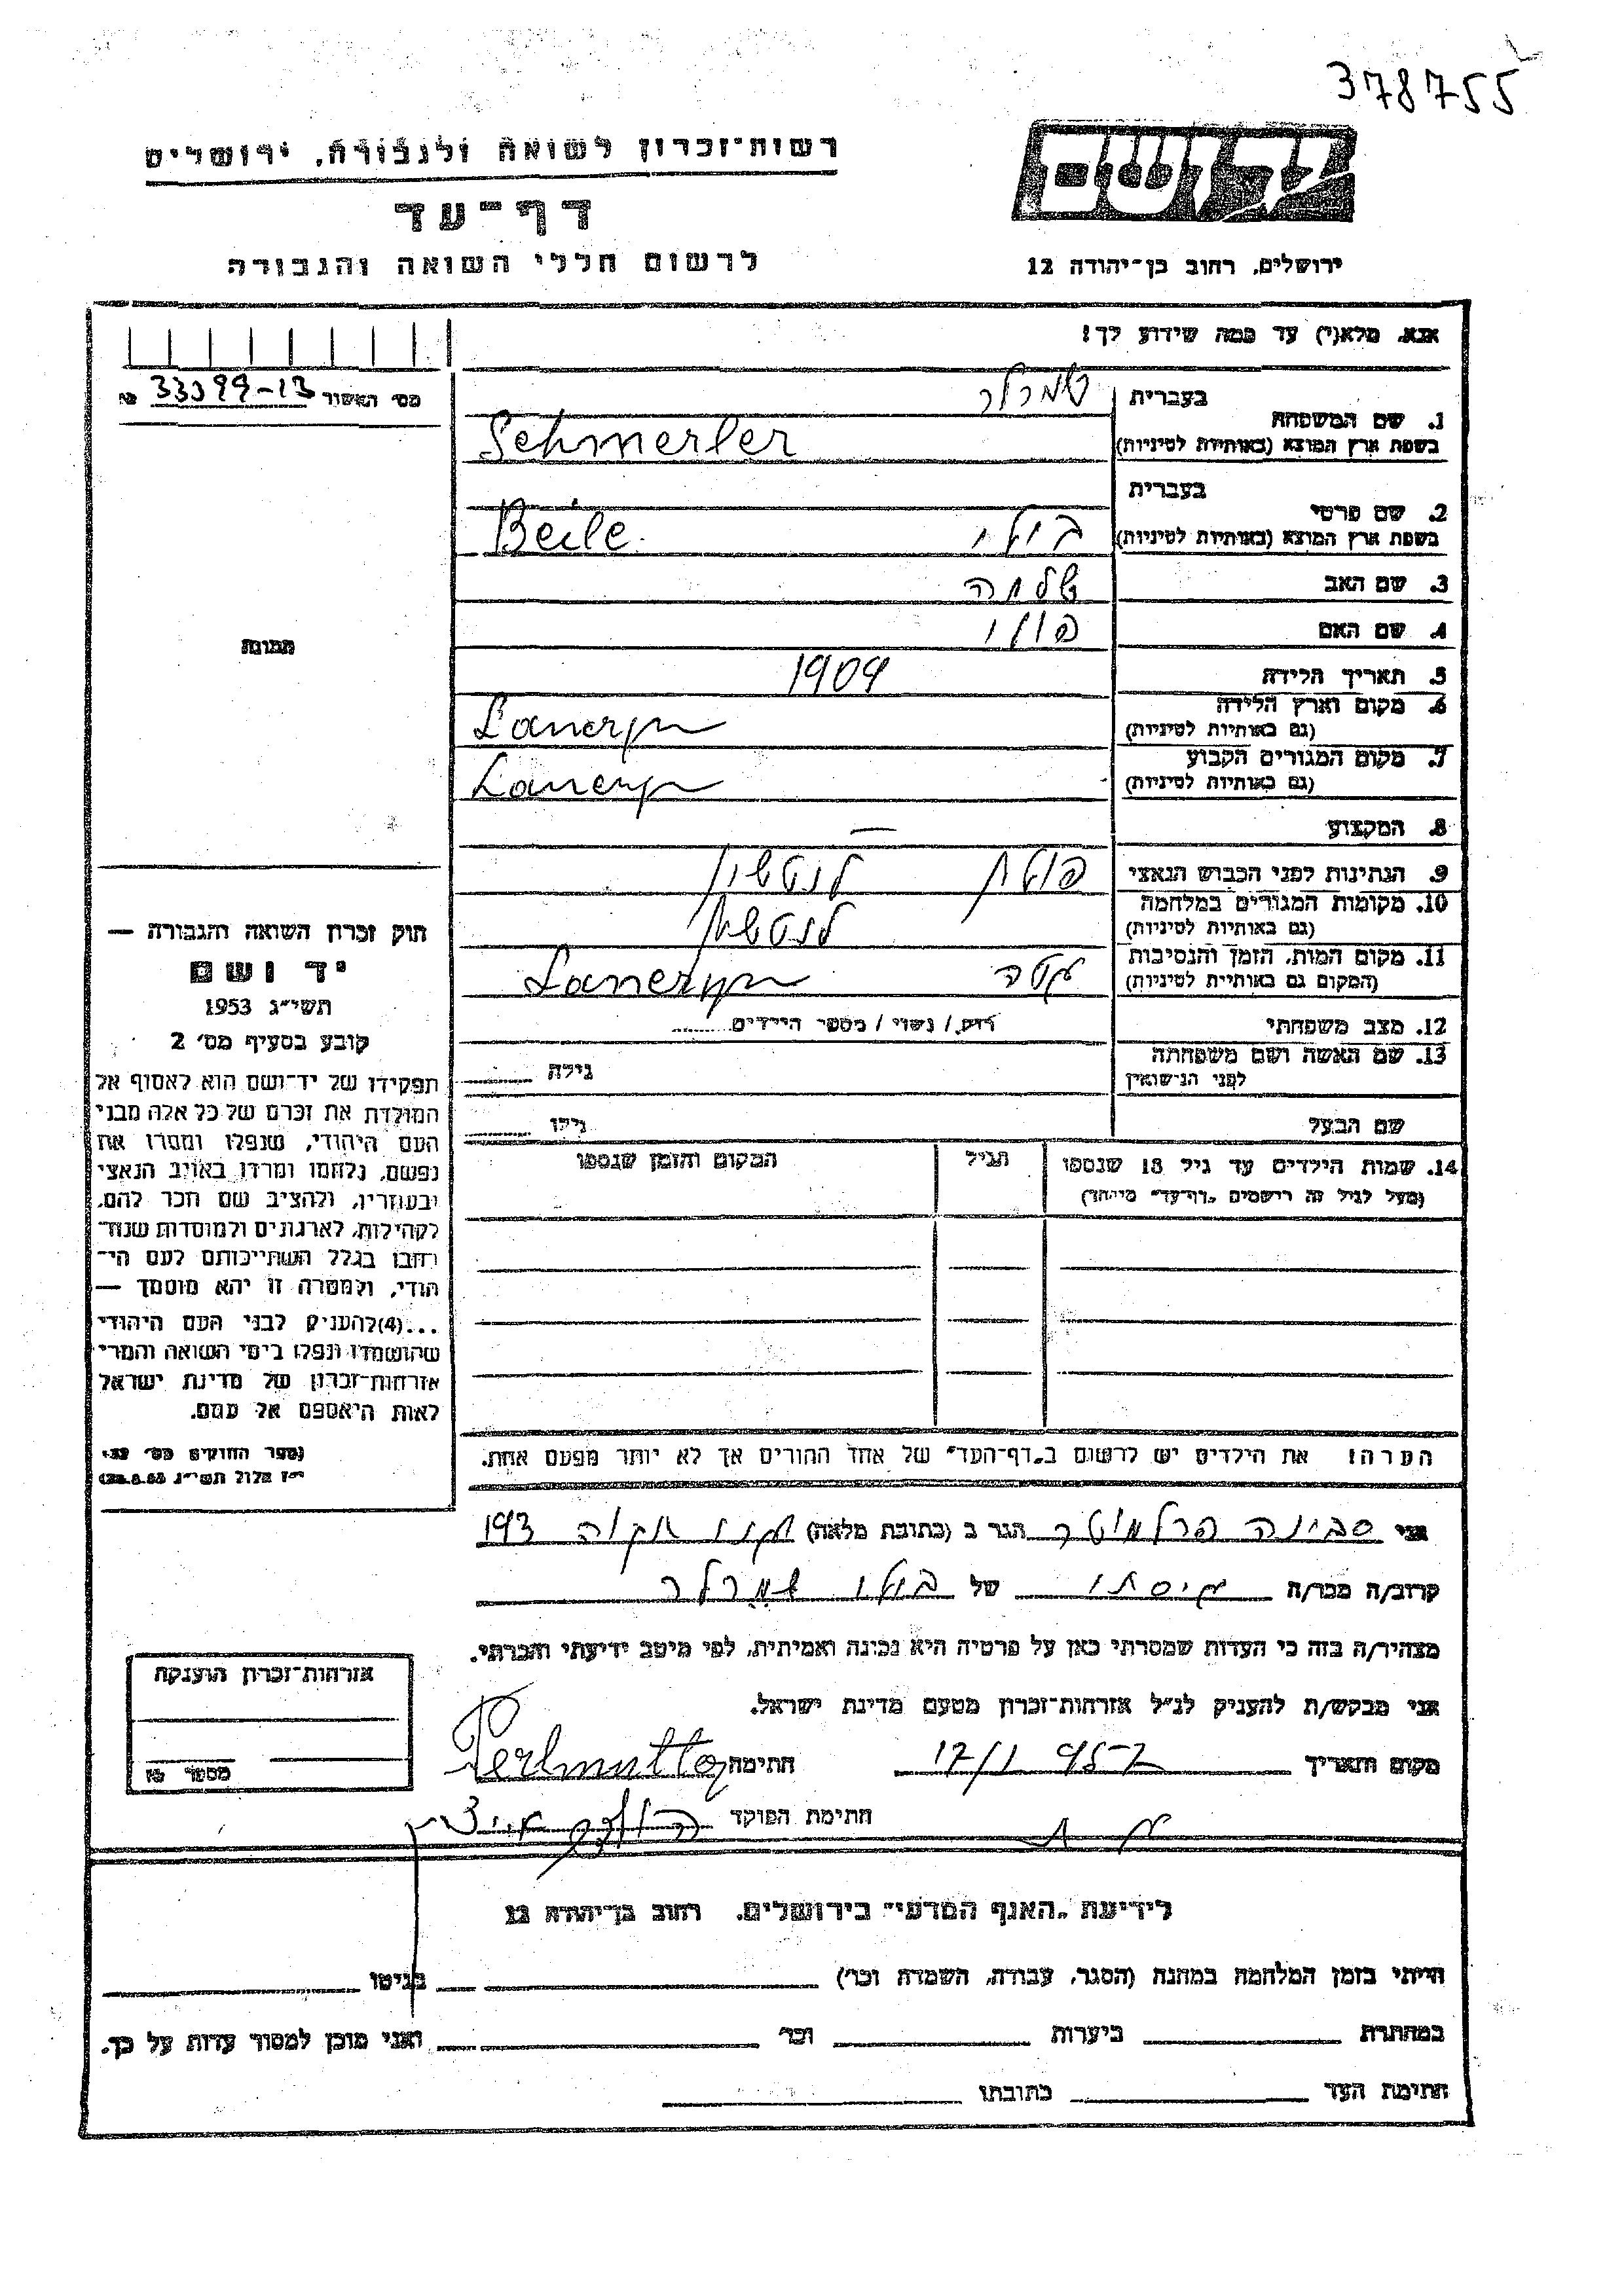 378755
יד ושם
רשות-זכרון לשואה ולגבורה, ירושלים
דף-עד
לרשום חללי השואה והגבורה
ירושלים, רחוב בן-יהודה 12
אנא, מלא(י) עד כמה שידוע לך!
מס' האשור 33399-13
1. שם המשפחה בעברית שמרלר
בשפת ארץ המוצא (באותיות לטיניות) Schmerler
2. שם פרטי בעברית
בשפת ארץ המוצא (באותיות לטיניות) ביילי Beile
3. שם האב שלמה
4. שם האם
5. תאריך הלידה 1909
6. מקום וארץ הלידה
(גם באותיות לטיניות)
7. מקום המגורים הקבוע
(גם באותיות לטיניות)
8. המקצוע —
9. הנתינות לפני הכבוש הנאצי פולנית
10. מקומות המגורים במלחמה
(גם באותיות לטיניות)
11. מקום המות, הזמן והנסיבות
(המקום גם באותיות לטיניות)
12. מצב משפחתי רווק / נשוי / מספר הילדים
13. שם האשה ושם משפחתה
לפני הנישואין
גילה
שם הבעל גילו
14. שמות הילדים עד גיל 18 שנספו הגיל המקום והזמן שנספו
(מעל לגיל זה רישמים "דף-עד" מיוחד)
הערה: את הילדים יש לרשום ב"דף-העד" של אחד ההורים אך לא יותר מפעם אחת.
תמונה
חוק זכרון השואה והגבורה —
יד ושם
תשי"ג 1953
קובע בסעיף מס' 2
תפקידו של יד-ושם הוא לאסוף אל
המולדת את זכרם של כל אלה מבני
העם היהודי, שנפלו ומסרו את
נפשם, נלחמו ומרדו באויב הנאצי
ובעוזריו, ולהציב שם וזכר להם,
לקהילות, לארגונים ולמוסדות שנח-
רבו בגלל השתייכותם לעם הי-
הודי, ולמטרה זו יהא מוסמך —
...(4) להעניק לבני העם היהודי
שהושמדו ונפלו בימי השואה והמרי
אזרחות-זכרון של מדינת ישראל
לאות היאספם אל עמם.
(ספר החוקים מס' 132
י"ז אלול תשי"ג 28.8.53)
אני סבינה פרלמוטר הגר ב (כתובת מלאה) 193
קרוב/ה מכר/ה גיסתי של ביילי שמרלר
מצהיר/ה בזה כי העדות שמסרתי כאן על פרטיה היא נכונה ואמיתית, לפי מיטב ידיעתי והכרתי.
אני מבקש/ת להעניק לנ"ל אזרחות-זכרון מטעם מדינת ישראל.
מקום ותאריך 17/1 957 חתימה Perlmutter
חתימת הפוקד
אזרחות-זכרון הוענקה
מספר
לידיעת "האגף המדעי" בירושלים. רחוב בן-יהודה 12
הייתי בזמן המלחמה במחנה (הסגר, עבודה, השמדה וכו') בגיטו
במחתרת ביערות וכו' ואני מוכן למסור עדות על כך.
חתימת העד כתובתו